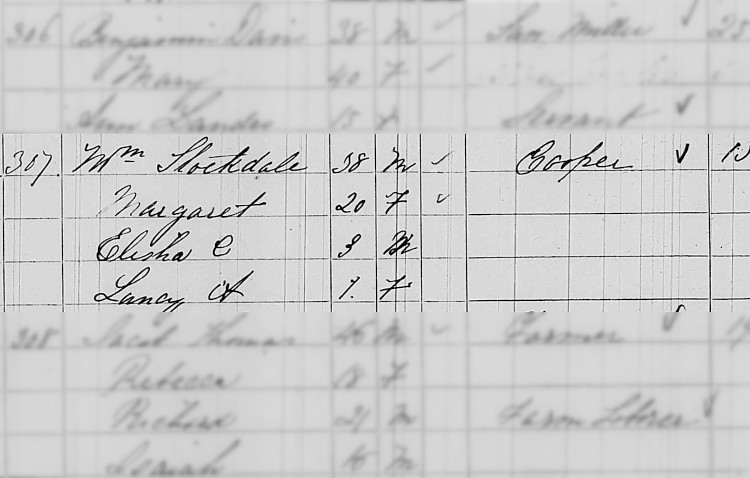 306 Benjamin Davis 38 M Saw Miller 23
Mary 40 F
Ann Landes 15 F Servant
307. Wm Stockdale 38 M Cooper
Margaret 20 F
Elisha C 3 M
Lancy A 1. F
308 Jacob Thomas 46 M Farmer
Rebecca 18 F
Richard 21 M Farm Laborer
Isaiah 16 M